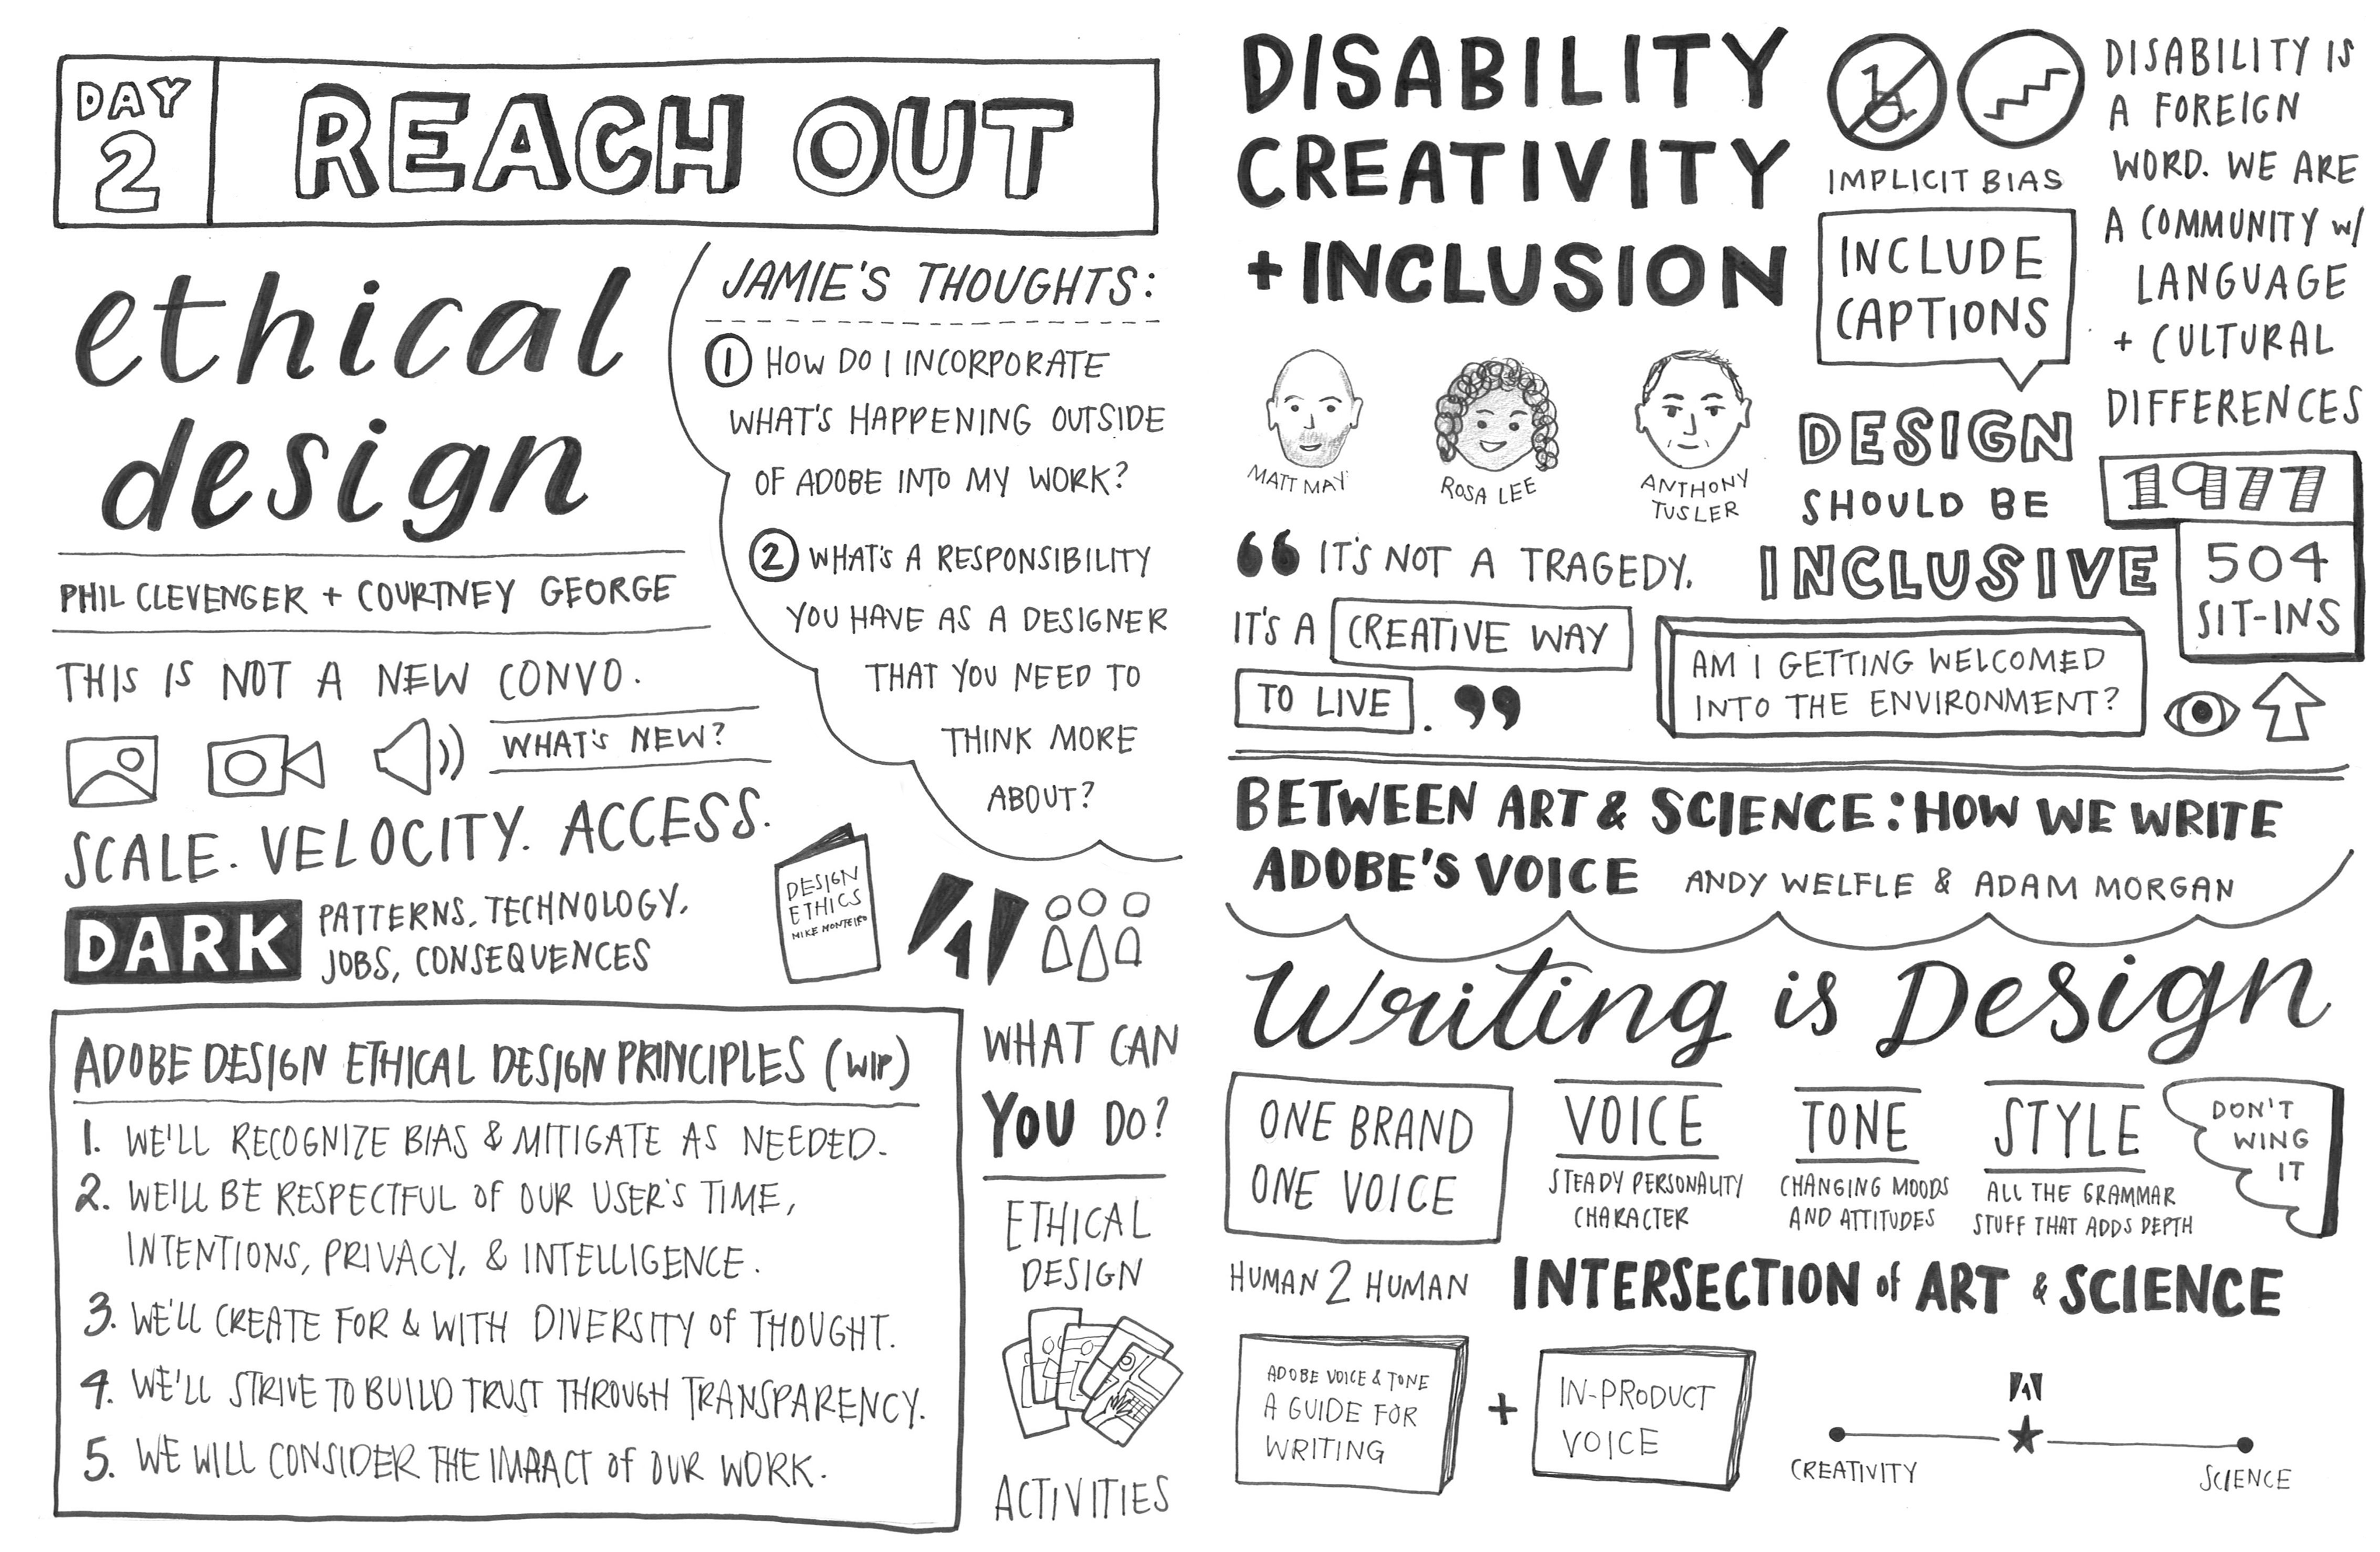 DAY
2
REACH OUT
ethical
design
PHIL CLEVENGER + COURTNEY GEORGE
THIS IS NOT A NEW CONVO.
WHAT'S NEW?
SCALE. VELOCITY. ACCESS.
DARK
PATTERNS, TECHNOLOGY,
JOBS, CONSEQUENCES
JAMIE'S THOUGHTS:
1 HOW DO I INCORPORATE
WHAT'S HAPPENING OUTSIDE
OF ADOBE INTO MY WORK?
2 WHAT'S A RESPONSIBILITY
YOU HAVE AS A DESIGNER
THAT YOU NEED TO
THINK MORE
ABOUT?
DESIGN
ETHICS
MIKE MONTEIRO
ADOBE DESIGN ETHICAL DESIGN PRINCIPLES (WIP)
1. WE'LL RECOGNIZE BIAS & MITIGATE AS NEEDED.
2. WE'LL BE RESPECTFUL of OUR USER'S TIME,
INTENTIONS, PRIVACY, & INTELLIGENCE.
3. WE'LL CREATE FOR & WITH DIVERSITY of THOUGHT.
4. WE'LL STRIVE TO BUILD TRUST THROUGH TRANSPARENCY.
5. WE WILL CONSIDER THE IMPACT of OUR WORK.
WHAT CAN
YOU DO?
ETHICAL
DESIGN
ACTIVITIES
DISABILITY
CREATIVITY
+ INCLUSION
IMPLICIT BIAS
INCLUDE
CAPTIONS
DISABILITY IS
A FOREIGN
WORD. WE ARE
A COMMUNITY w/
LANGUAGE
+ CULTURAL
DIFFERENCES
MATT MAY
ROSA LEE
ANTHONY
TUSLER
DESIGN
SHOULD BE
INCLUSIVE
1977
504
SIT-INS
“ IT'S NOT A TRAGEDY.
IT'S A CREATIVE WAY
TO LIVE. ”
AM I GETTING WELCOMED
INTO THE ENVIRONMENT?
BETWEEN ART & SCIENCE: HOW WE WRITE
ADOBE'S VOICE ANDY WELFLE & ADAM MORGAN
Writing is Design
ONE BRAND
ONE VOICE
VOICE
STEADY PERSONALITY
CHARACTER
TONE
CHANGING MOODS
AND ATTITUDES
STYLE
ALL THE GRAMMAR
STUFF THAT ADDS DEPTH
DON'T
WING
IT
HUMAN 2 HUMAN
INTERSECTION of ART & SCIENCE
ADOBE VOICE & TONE
A GUIDE FOR
WRITING
+
IN-PRODUCT
VOICE
CREATIVITY
SCIENCE